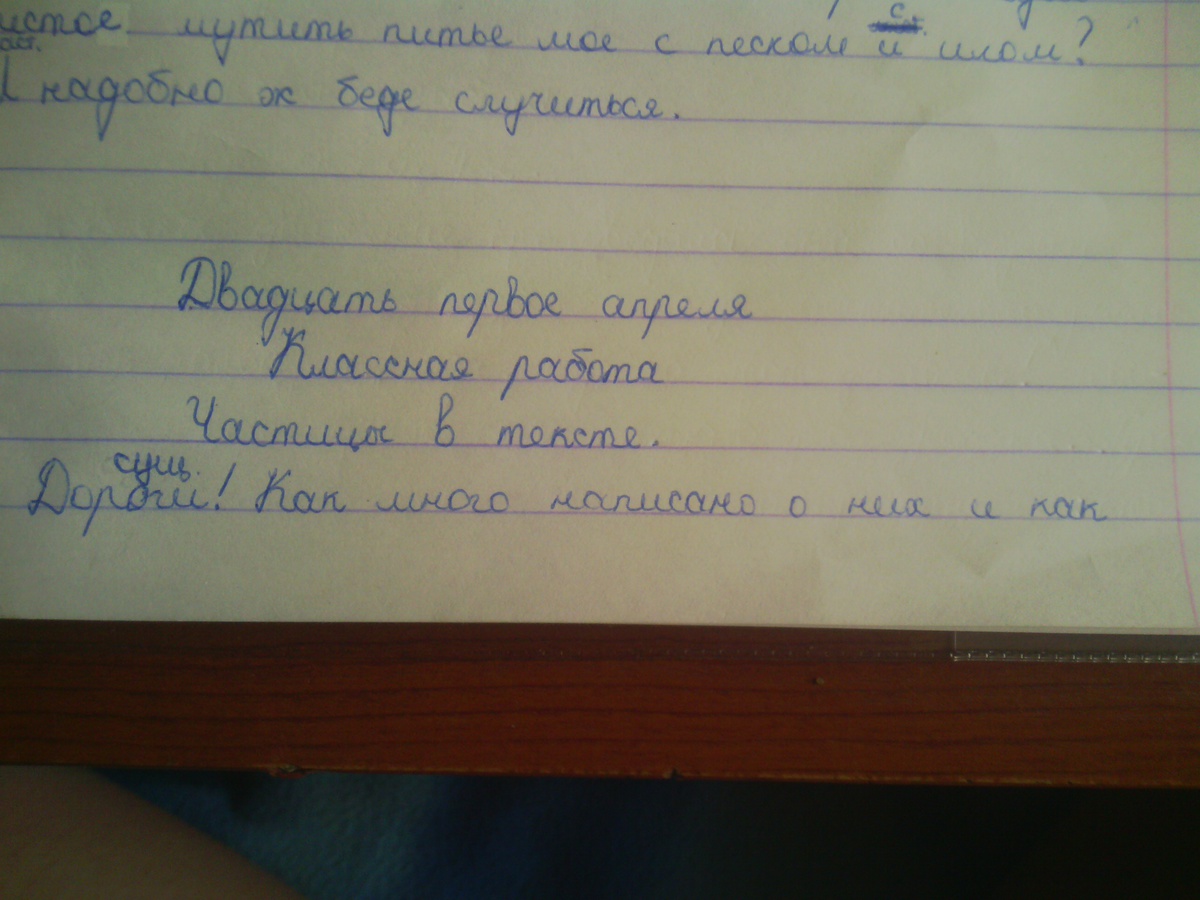 с.
истое мутить питье мое с песком и илом?
надобно ж беде случиться.
Двадцать первое апреля
Классная работа
Частицы в тексте.
сущ.
Дороги! Как много написано о них и как